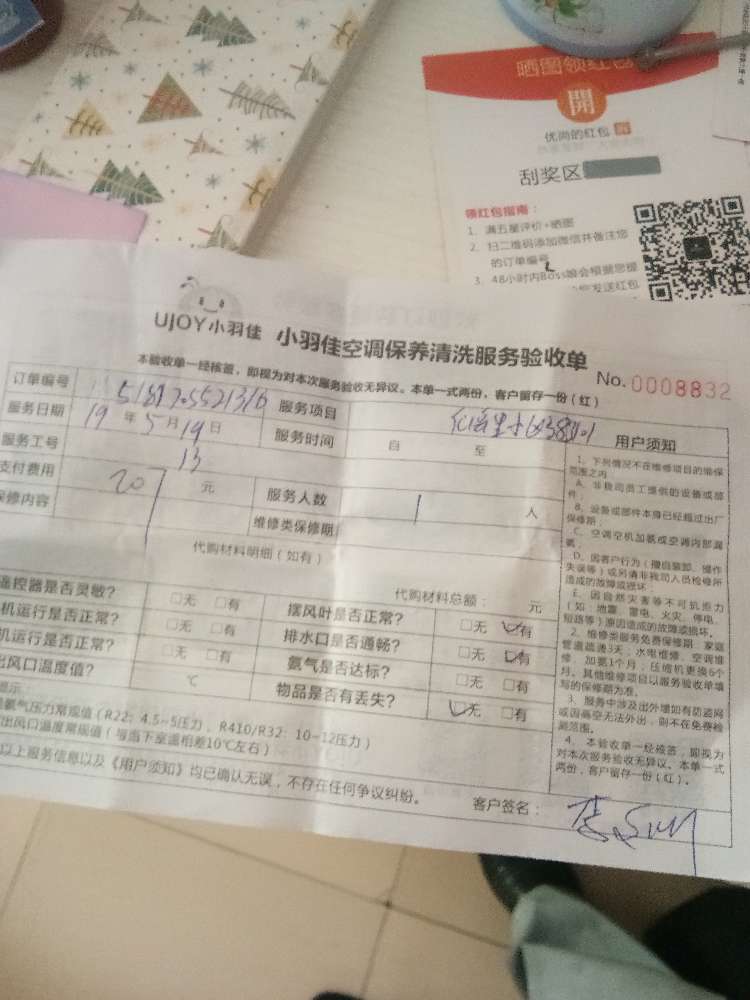 晒图领红包
開
优尚的红包
刮奖区
领红包指南：
1. 满五星评价+晒图
2. 扫二维码添加微信并备注您
的订单编号
3. 48小时内Boss娘会根据您提
您发送红包
UJOY小羽佳 小羽佳空调保养清洗服务验收单
本验收单一经核签，即视为对本次服务验收无异议。本单一式两份，客户留存一份（红）
No. 0008832
订单编号 服务项目
服务日期 19年5月19日 服务时间 自 至
服务工号 13
支付费用 20 元 服务人数 1 人
保修内容 维修类保修期
代购材料明细（如有）
代购材料总额： 元
遥控器是否灵敏？ □无 □有 摆风叶是否正常？ □无 □有
机运行是否正常？ □无 □有 排水口是否通畅？ □无 □有
机运行是否正常？ □无 □有 氨气是否达标？ □无 □有
出风口温度值？ ℃ 物品是否有丢失？ □无 □有
提示：
氨气压力常规值（R22：4.5~5压力、R410/R32：10~12压力）
出风口温度常规值（与当下室温相差10℃左右）
以上服务信息以及《用户须知》均已确认无误，不存在任何争议纠纷。
客户签名：
用户须知
1、下列情况不在维修项目的维保
范围之内
A、非我司员工提供的设备或部
件；
B、设备或部件本身已经超过出厂
保修期；
C、空调空机加氨或空调内部漏
氨；
D、因客户行为（擅自装卸、操作
失误等）或另请非我司人员检修所
造成的故障或损坏；
E、因自然灾害等不可抗拒力
（如：地震、雷电、火灾、停电、
短路等）原因造成的故障或损坏。
2、维修类服务免费保修期：家庭
管道疏通3天，水电维修、空调维
修、加氨1个月，压缩机更换6个
月。其他维修项目以服务验收单填
写的保修期为准。
3、服务中涉及出外墙如有防盗网
或因高空无法外出，则不在免费检
测范围。
4、本验收单一经核签，即视为
对本次服务验收无异议。本单一式
两份，客户留存一份（红）。